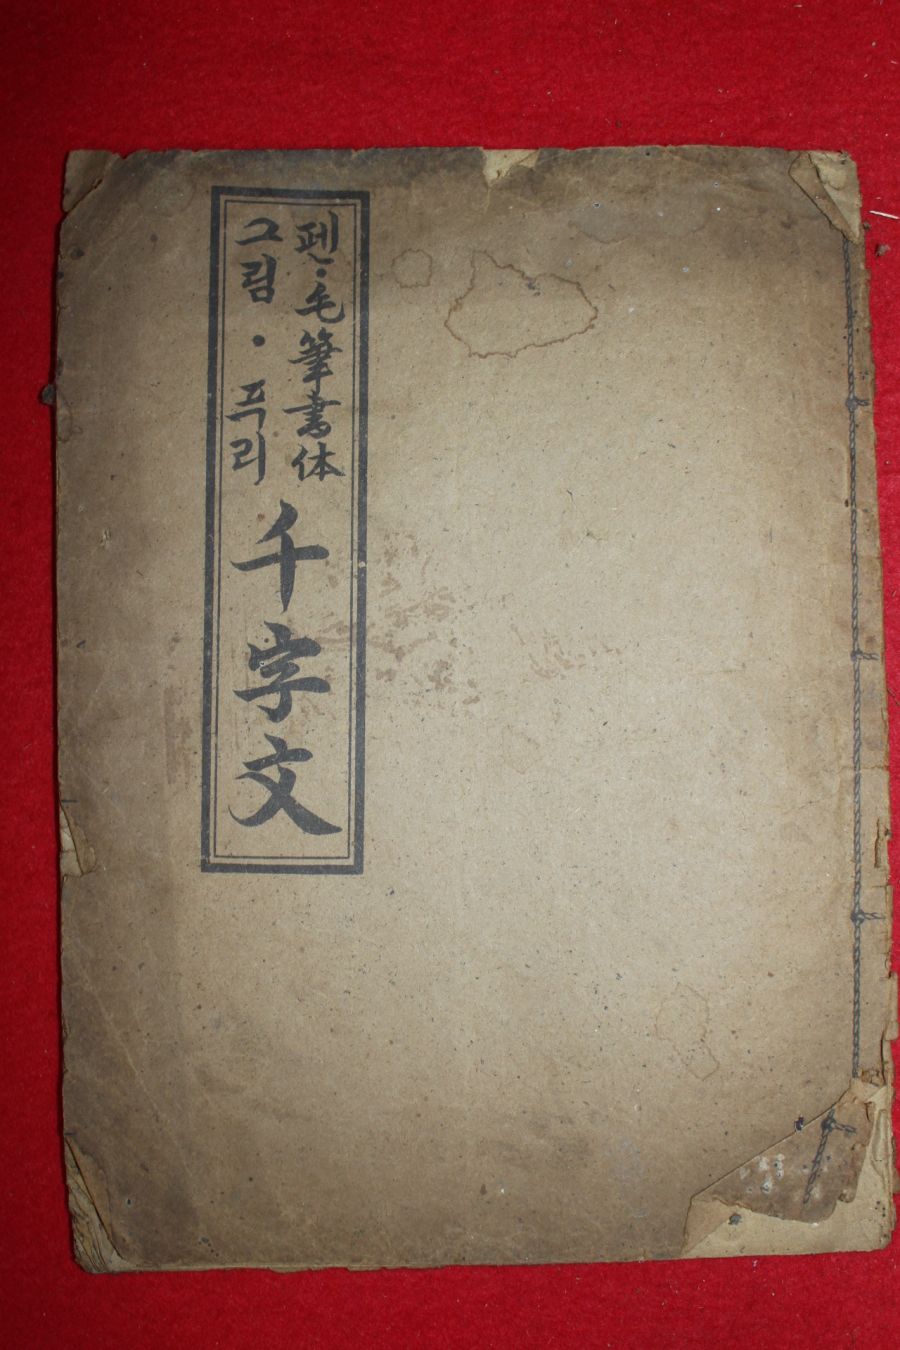 펜·毛筆書体
그림·푸리
千字文